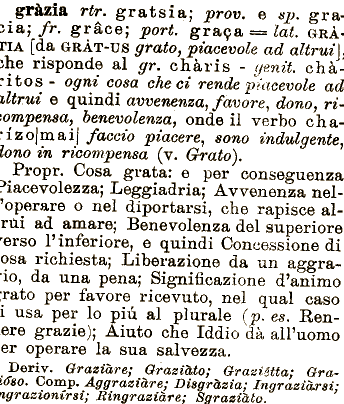 gràzia rtr. gratsia; prov. e sp. gra-
cia; fr. grâce; port. graça = lat. GRÀ-
TIA [da GRÀT-US grato, piacevole ad altrui],
che risponde al gr. chàris - genit. chà-
ritos - ogni cosa che ci rende piacevole ad
altrui e quindi avvenenza, favore, dono, ri-
compensa, benevolenza, onde il verbo cha-
rízo|mai| faccio piacere, sono indulgente,
dono in ricompensa (v. Grato).
Propr. Cosa grata: e per conseguenza
Piacevolezza; Leggiadria; Avvenenza nel-
l'operare o nel diportarsi, che rapisce al-
trui ad amare; Benevolenza del superiore
verso l'inferiore, e quindi Concessione di
cosa richiesta; Liberazione da un aggra-
vio, da una pena; Significazione d'animo
grato per favore ricevuto, nel qual caso
si usa per lo piú al plurale (p. es. Ren-
dere grazie); Aiuto che Iddio dà all'uomo
per operare la sua salvezza.
Deriv. Graziàre; Graziàto; Graziétta; Gra-
zióso. Comp. Aggraziàre; Disgràzia; Ingraziàrsi;
Ingrazionírsi; Ringraziàre; Sgraziàto.